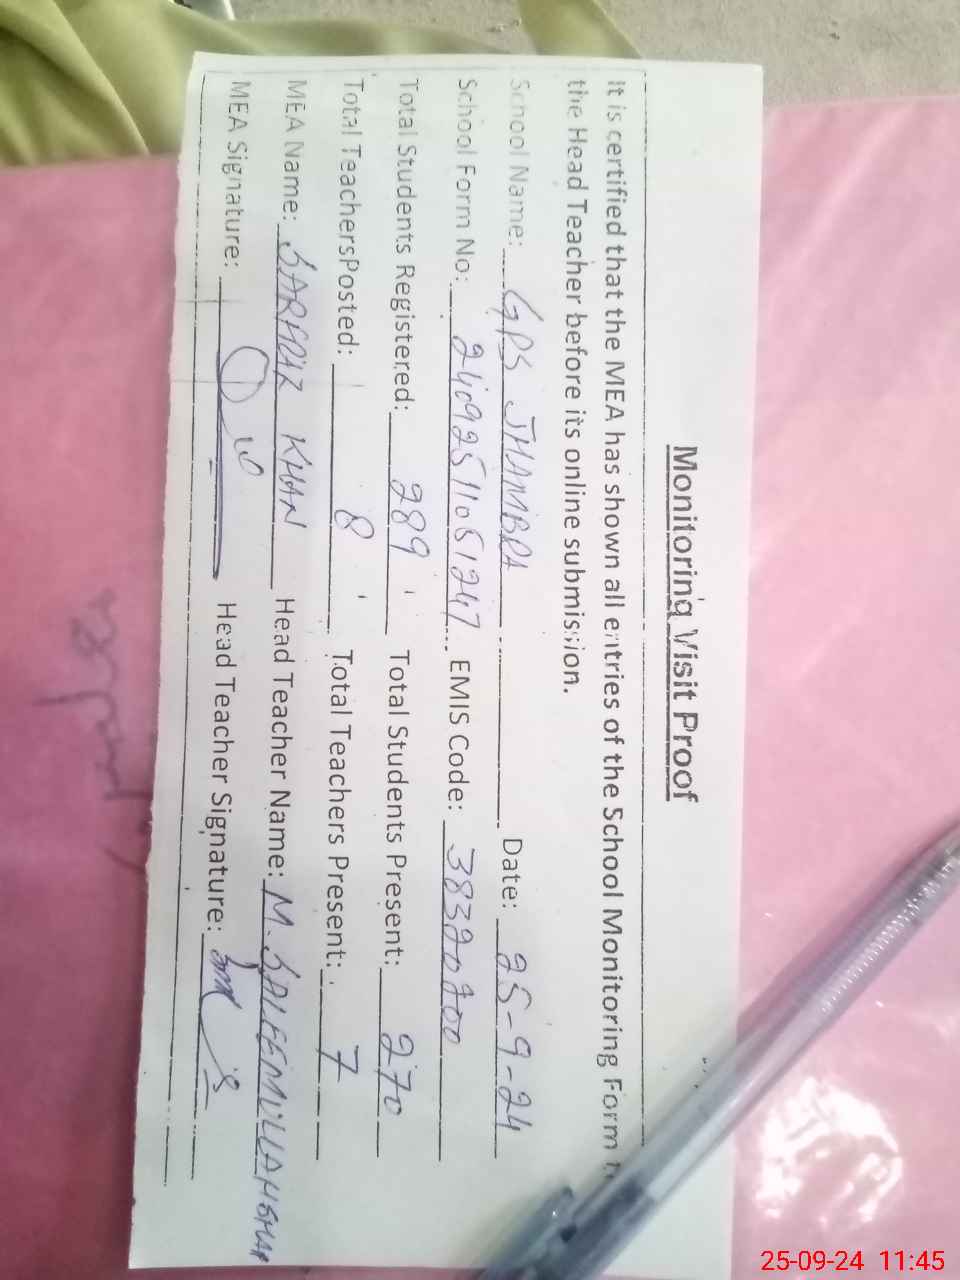 Monitoring Visit Proof
It is certified that the MEA has shown all entries of the School Monitoring Form t
the Head Teacher before its online submission.
School Name: GPS JHAMBRA Date: 25-9-24
School Form No: 24092511051247 EMIS Code: 38320700
Total Students Registered: 289 Total Students Present: 270
Total TeachersPosted: 8 Total Teachers Present: 7
MEA Name: SARFARAZ KHAN Head Teacher Name: M. SALEEMULLAH SHAH
MEA Signature: Head Teacher Signature:
25-09-24 11:45